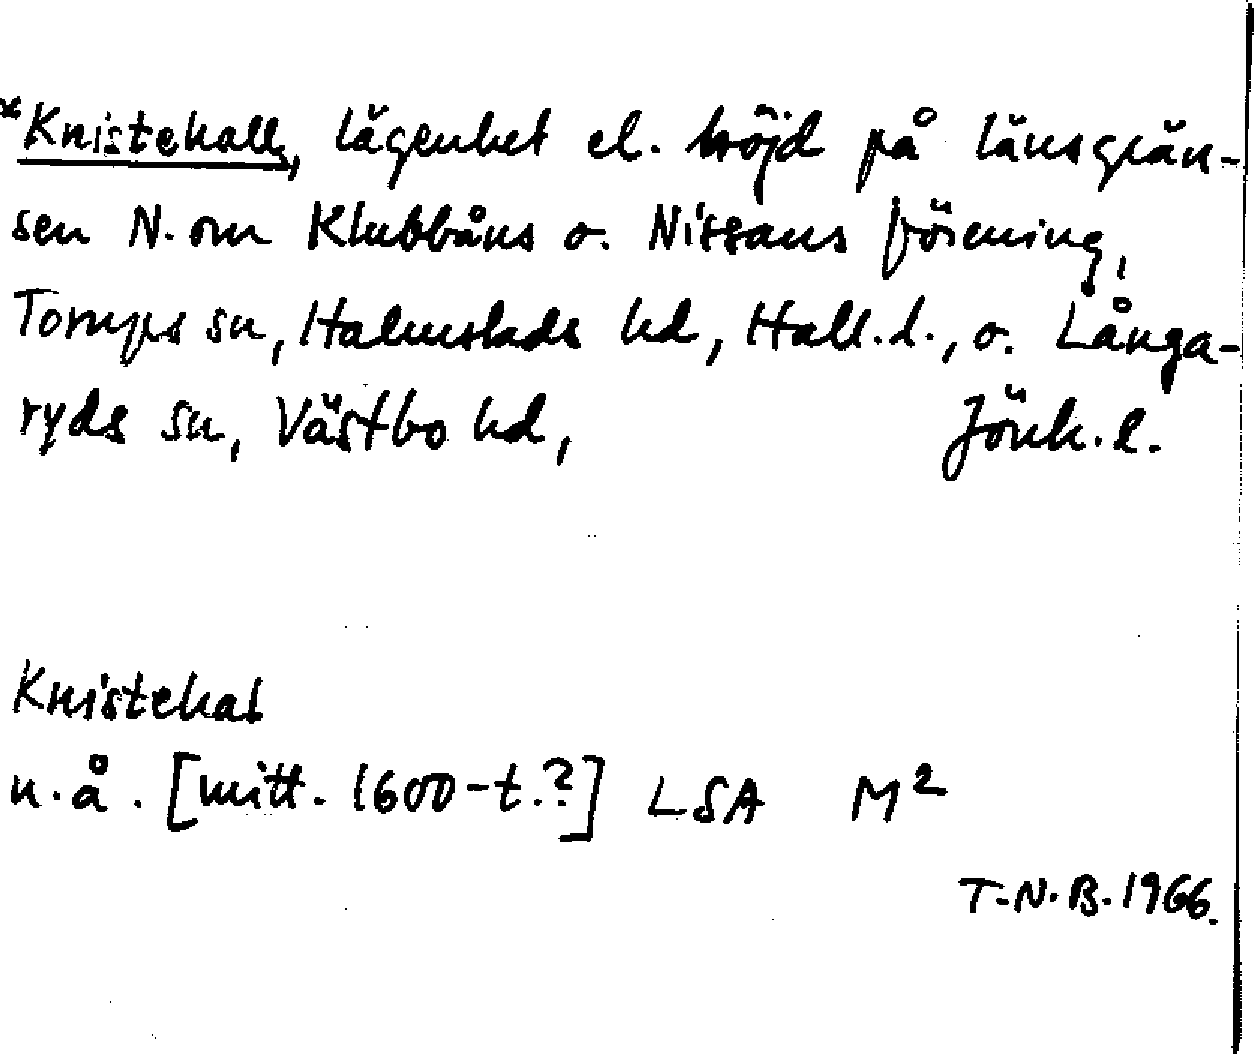 *Knistehall, lägenhet el. höjd på länsgrän-
sen N. om Klubbåns o. Nissans förening,
Torups sn, Halmstads hd, Hall.l., o. Långa-
ryds sn, Västbo hd, Jönk.l.
Knistehal
n.å. [mitt. 1600-t.?] LSA M²
T.N.B. 1966.